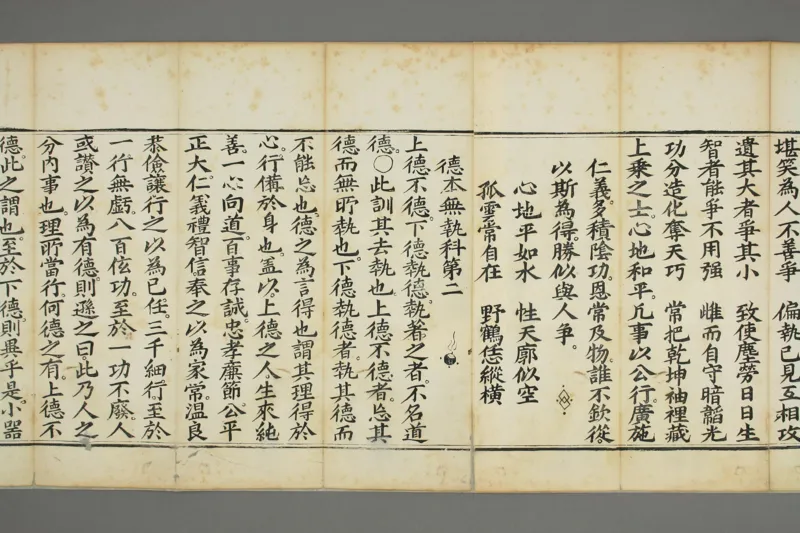 堪笑為人不善爭　偏執己見互相攻
遺其大者爭其小　致使塵勞日日生
智者能爭不用强　雌而自守暗韜光
功分造化奪天巧　常把乾坤袖裡藏
上乘之士。心地和平。凡事以公。行廣施
仁義。多積陰功。恩常及物。誰不欽從。
以斯為得。勝似與人爭。
心地平如水　性天廓似空
孤雲常自在　野鶴恁縱橫
德本無執科第二
上德不德。下德執德。執著之者。不名道
德。〇此訓其去執也。上德不德者。忘其
德而無所執也。下德執德者。執其德而
不能忘也。德之為言得也。謂其理得於
心。行備於身也。盖以。上德之人。生來純
善。一心向道。百事存誠。忠孝廉節。公平
正大。仁義禮智信奉之以為家常。溫良
恭儉讓行之以為己任。三千細行。至於
一行無虧。八百伭功。至於一功不廢。人
或讚之以為有德。則遜之曰。此乃人之
分內事也。理所當行。何德之有。上德不
德。此之謂也。至於下德則異乎是。小器